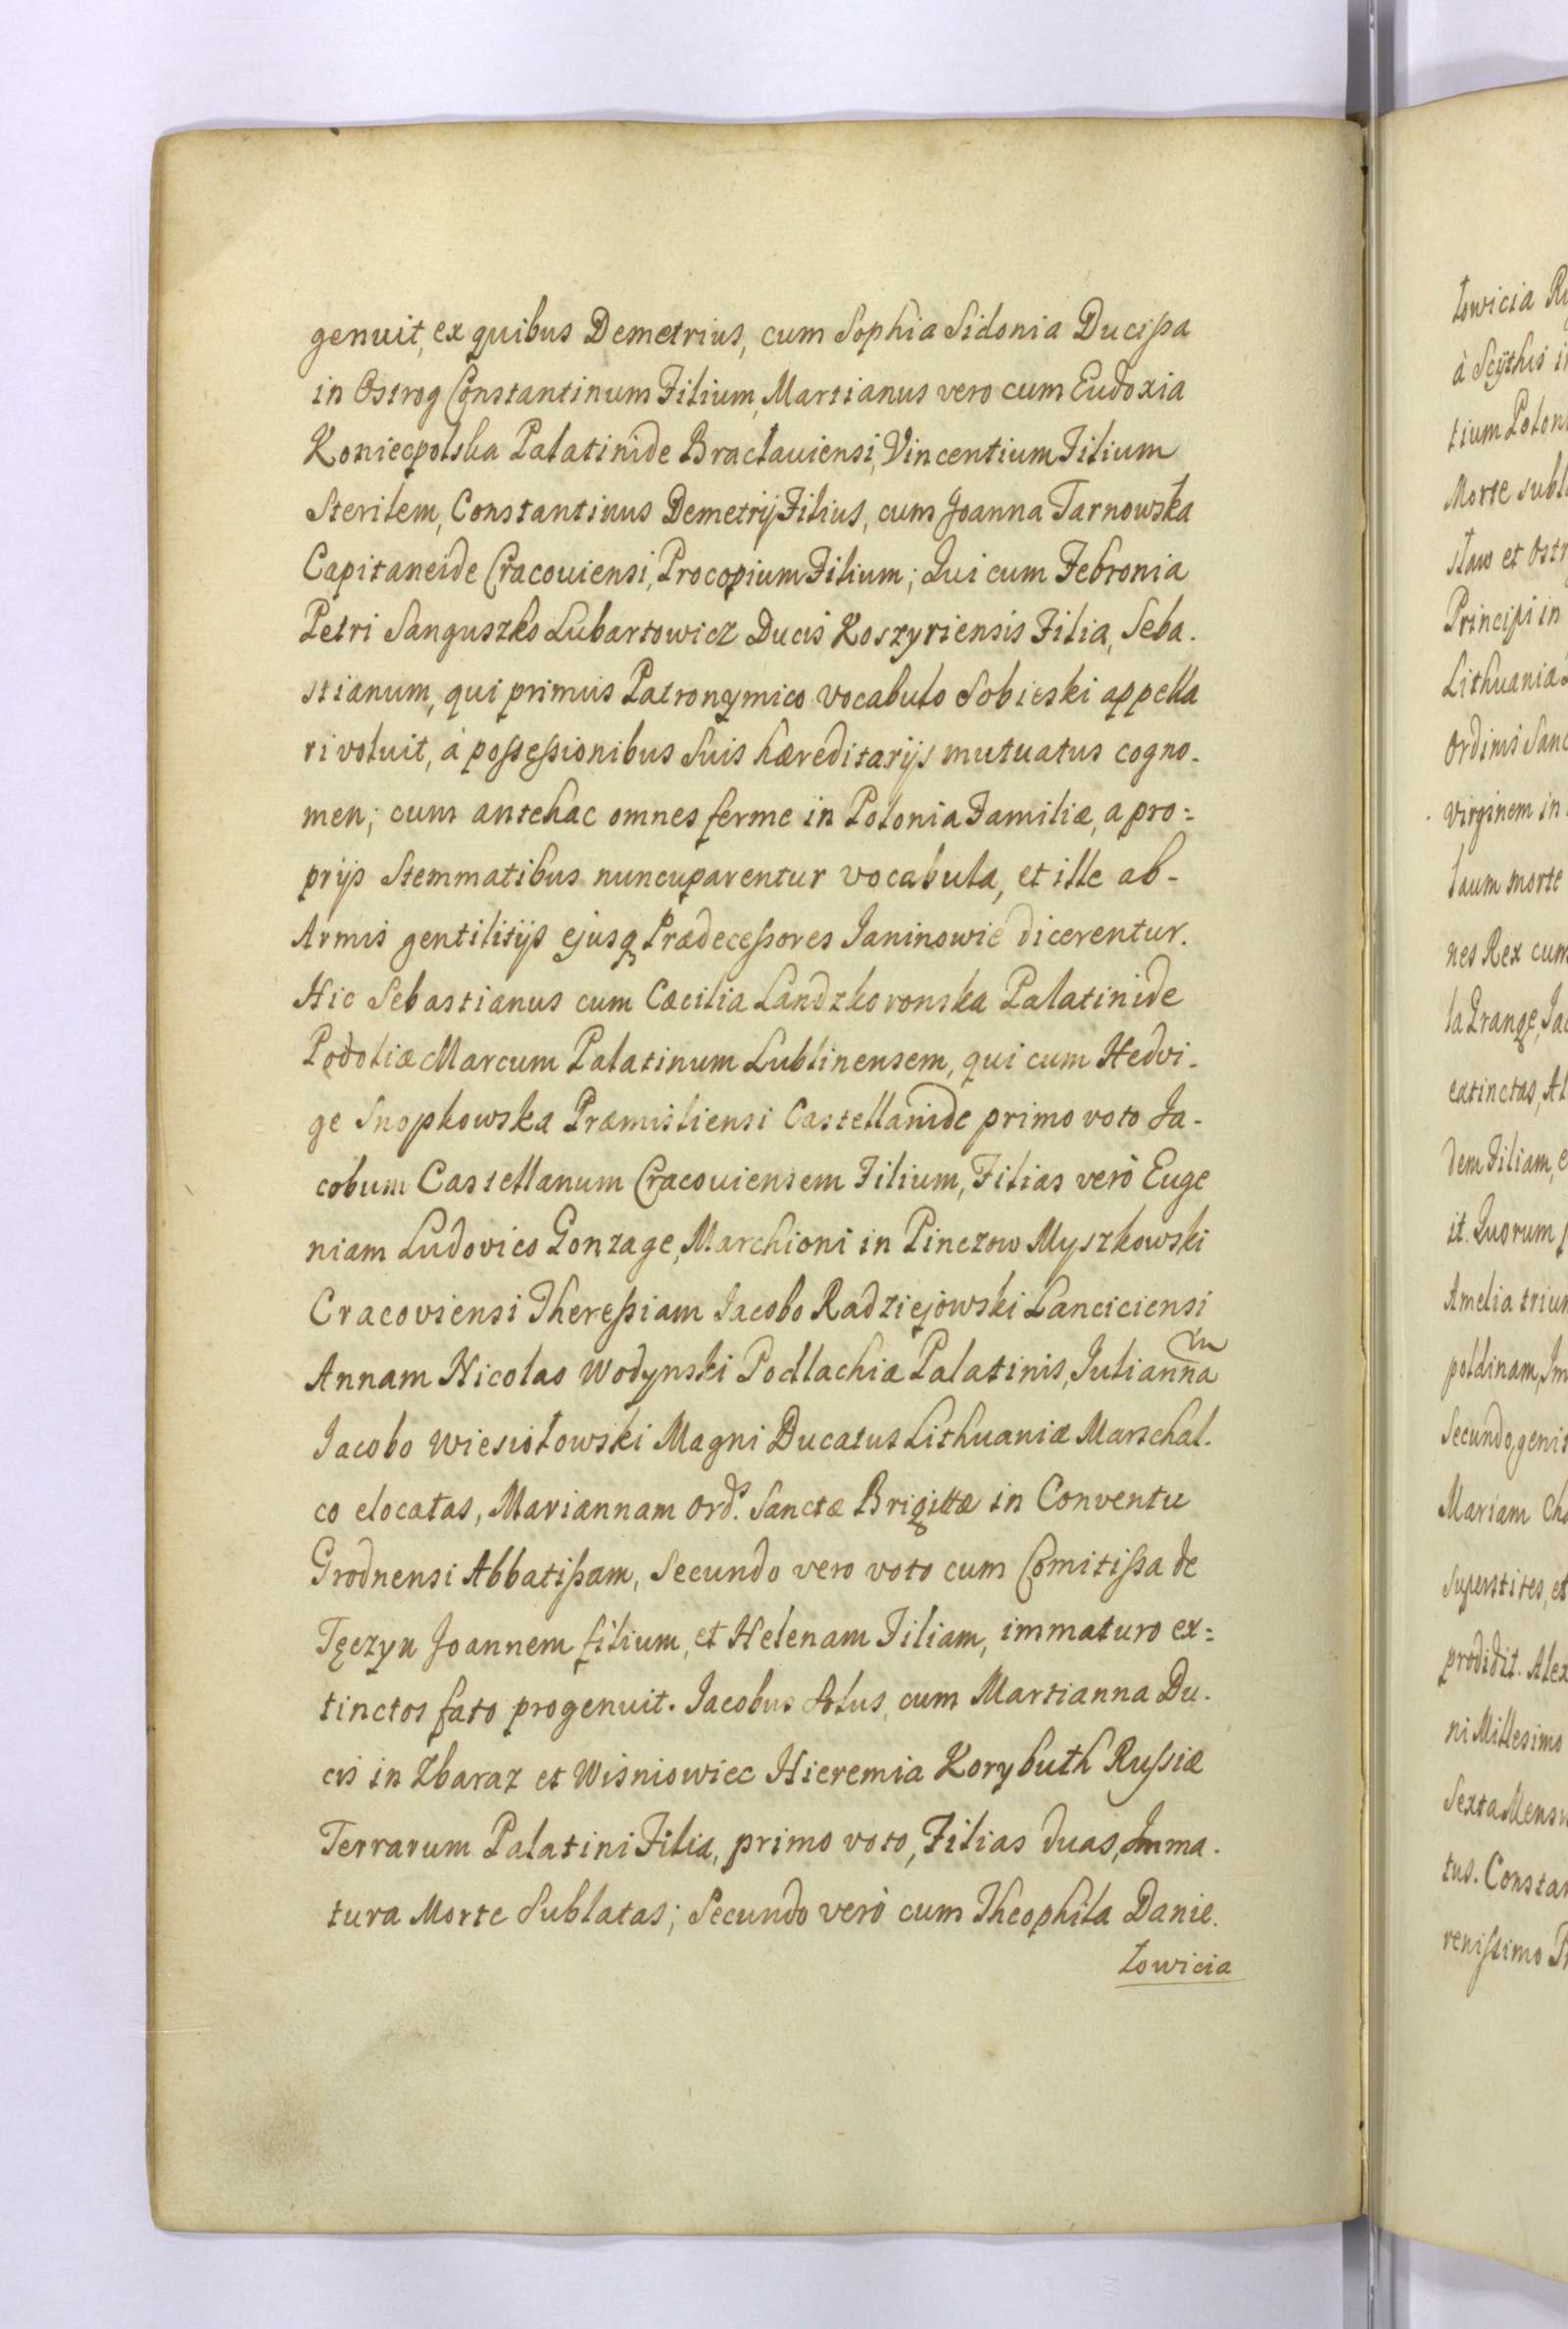 genuit, ex quibus Demetrius, cum Sophia Sidonia Ducißa
in Ostrog Constantinum Filium, Martianus vero cum Eudoxia
Koniecpolska Palatinide Bracłauiensi, Vincentium Filium
Sterilem, Constantinus Demetrij Filius, cum Joanna Tarnowska
Capitaneide Cracouiensi, Procopium Filium; Qui cum Febronia
Petri Sanguszko Lubartowicz Ducis Koszyriensis Filia, Seba-
stianum, qui primus Patronymico vocabulo Sobieski appella
ri voluit, à poßeßionibus Suis hæreditarijs mutuatus cogno-
men; cum antehac omnes ferme in Polonia Familiæ, a pro=
prijs Stemmatibus nuncuparentur vocabula, et ille ab-
Armis gentilitijs ejusq Prædeceßores Janinowie dicerentur.
Hic Sebastianus cum Cæcilia Landzkoronska Palatinide
Podoliæ Marcum Palatinum Lublinensem, qui cum Hedvi-
ge Snopkowska Præmisliensi Castellanide primo voto Ja-
cobum Castellanum Cracouiensem Filium, Filias verò Euge
niam Ludovico Gonzage, Marchioni in Pinczow Myszkowski
Cracoviensi Thereßiam Jacobo Radziejowski Lanciciensi
Annam Nicolao Wodynski Podlachiæ Palatinis, Juliannam
Jacobo Wiesiołowski Magni Ducatus Lithuaniæ Marschal-
co elocatas, Mariannam Ord.s Sanctæ Brigittæ in Conventu
Grodnensi Abbatißam, Secundo vero voto cum Comitißa de
Tęczyn Joannem filium, et Helenam Filiam, immaturo ex=
tinctos fato progenuit. Jacobus Solus, cum Martianna Du-
cis in Zbaraz et Wisniowiec Hieremia Korybuth Rußiæ
Terrarum Palatini Filia, primo voto, Filias duas, Imma-
tura Morte Sublatas; Secundo verò cum Theophila Danie-
łowicia
łowicia
à Scÿthis
tium
Morte
sław et
Principi in
Lithuania
Ordinis
virginem in
laum morte
nes Rex cum
la Grange,
extinctas,
dem Filiam,
it. Quorum
Amelia
poldinam,
Secundo,
Mariam
Superstites, et
prodidit.
ni Millesimo
Sexta
tus.
renißimo